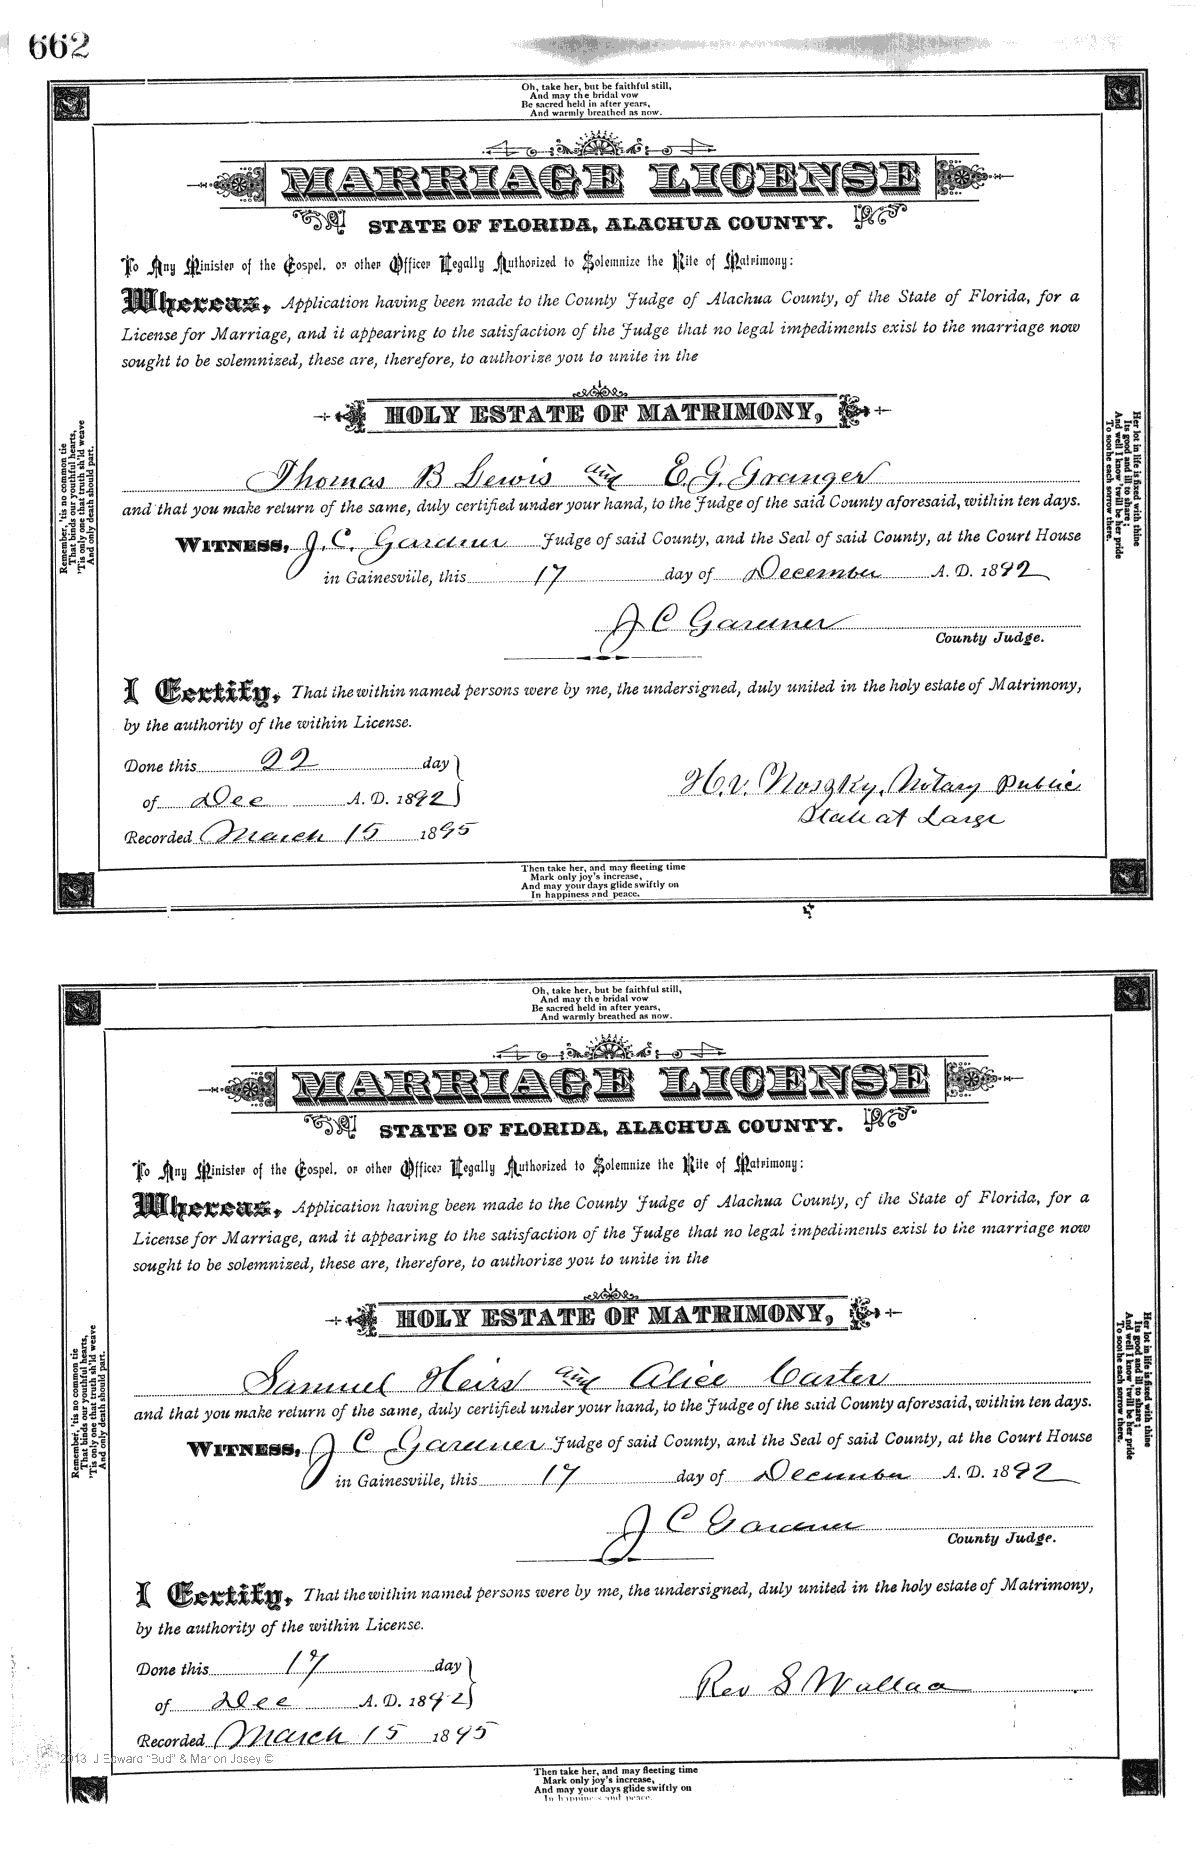 662
Oh, take her, but be faithful still,
And may the bridal vow
Be sacred held in after years,
And warmly breathed as now.
MARRIAGE LICENSE
STATE OF FLORIDA, ALACHUA COUNTY.
To Any Minister of the Gospel, or other Officer Legally Authorized to Solemnize the Rite of Matrimony:
Whereas, Application having been made to the County Judge of Alachua County, of the State of Florida, for a
License for Marriage, and it appearing to the satisfaction of the Judge that no legal impediments exist to the marriage now
sought to be solemnized, these are, therefore, to authorize you to unite in the
HOLY ESTATE OF MATRIMONY,
Thomas B Lewis and E. G. Granger
and that you make return of the same, duly certified under your hand, to the Judge of the said County aforesaid, within ten days.
WITNESS, J. C. Gardner Judge of said County, and the Seal of said County, at the Court House
in Gainesville, this 17 day of December A. D. 1892
J C Gardner
County Judge.
I Certify, That the within named persons were by me, the undersigned, duly united in the holy estate of Matrimony,
by the authority of the within License.
Done this 22 day
of Dec A. D. 1892
H. V. Noszky, Notary Public
State at Large
Recorded March 15 1895
Remember, 'tis no common tie
That binds our youthful hearts,
'Tis only one that truth sh'ld weave
And only death should part.
Her lot in life is fixed with thine
Its good and ill to share;
And well I know 'twill be her pride
To soothe each sorrow there.
Then take her, and may fleeting time
Mark only joy's increase,
And may your days glide swiftly on
In happiness and peace.
Oh, take her, but be faithful still,
And may the bridal vow
Be sacred held in after years,
And warmly breathed as now.
MARRIAGE LICENSE
STATE OF FLORIDA, ALACHUA COUNTY.
To Any Minister of the Gospel, or other Officer Legally Authorized to Solemnize the Rite of Matrimony:
Whereas, Application having been made to the County Judge of Alachua County, of the State of Florida, for a
License for Marriage, and it appearing to the satisfaction of the Judge that no legal impediments exist to the marriage now
sought to be solemnized, these are, therefore, to authorize you to unite in the
HOLY ESTATE OF MATRIMONY,
Samuel Heirs and Alice Carter
and that you make return of the same, duly certified under your hand, to the Judge of the said County aforesaid, within ten days.
WITNESS, J C Gardner Judge of said County, and the Seal of said County, at the Court House
in Gainesville, this 17 day of December A. D. 1892
J C Gardner
County Judge.
I Certify, That the within named persons were by me, the undersigned, duly united in the holy estate of Matrimony,
by the authority of the within License.
Done this 17 day
of Dec A. D. 1892
Rev S Wallace
Recorded March 15 1895
2013 J Edward "Bud" & Marion Josey ©
Remember, 'tis no common tie
That binds our youthful hearts,
'Tis only one that truth sh'ld weave
And only death should part.
Her lot in life is fixed with thine
Its good and ill to share;
And well I know 'twill be her pride
To soothe each sorrow there.
Then take her, and may fleeting time
Mark only joy's increase,
And may your days glide swiftly on
In happiness and peace.